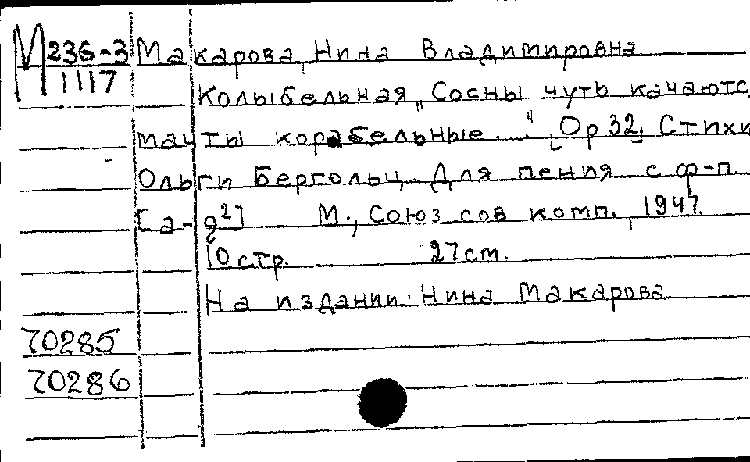 М 236-3 Макарова, Нина Владимировна
1117
Колыбельная „Сосны чуть качаютс
мачты корабельные..." [Ор 32] Стихи
Ольги Бергольц. Для пения с ф-п.
[a-g²] М., Союз сов комп., 1947.
10 стр. 27 см.
На издании: Нина Макарова
70285
70286